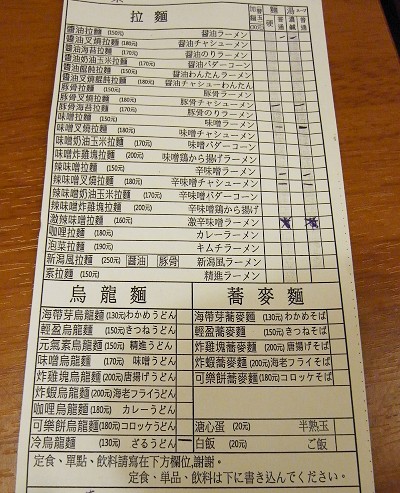 拉麵
加麵 替玉 (30元)
麵 硬 普通
湯 スープ 濃鹹 普通
醬油拉麵 (150元) 醤油ラーメン
醬油叉燒拉麵 (180元) 醤油チャシューメン
醬油海苔拉麵 (170元) 醤油のりラーメン
醬油奶油玉米拉麵 (170元) 醤油バターコーン
醬油餛飩拉麵 (150元) 醤油わんたんラーメン
醬油叉燒餛飩拉麵 (180元) 醤油チャシューわんたん
豚骨拉麵 (150元) 豚骨ラーメン
豚骨叉燒拉麵 (180元) 豚骨チャシューメン
豚骨海苔拉麵 (170元) 豚骨のりラーメン
味噌拉麵 (150元) 味噌ラーメン
味噌叉燒拉麵 (180元) 味噌チャシューメン
味噌奶油玉米拉麵 (170元) 味噌バターコーン
味噌炸雞塊拉麵 (200元) 味噌鶏から揚げラーメン
辣味噌拉麵 (150元) 辛味噌ラーメン
辣味噌叉燒拉麵 (180元) 辛味噌チャシューメン
辣味噌奶油玉米拉麵 (170元) 辛味噌バターコーン
辣味噌炸雞塊拉麵 (200元) 辛味噌鶏から揚げ
激辣味噌拉麵 (160元) 激辛味噌ラーメン
咖哩拉麵 (180元) カレーラーメン
泡菜拉麵 (190元) キムチラーメン
新潟風拉麵 (250元) 醬油 豚骨 新潟風ラーメン
素拉麵 (150元) 精進ラーメン
烏龍麵 蕎麥麵
海帶芽烏龍麵 (130元) わかめうどん 海帶芽蕎麥麵 (130元) わかめそば
輕盈烏龍麵 (150元) きつねうどん 輕盈蕎麥麵 (150元) きつねそば
元氣素烏龍麵 (150元) 精進うどん 炸雞塊蕎麥麵 (200元) 唐揚げそば
味噌烏龍麵 (170元) 味噌うどん 炸蝦蕎麥麵 (200元) 海老フライそば
炸雞塊烏龍麵 (200元) 唐揚げうどん 可樂餅蕎麥麵 (180元) コロッケそば
炸蝦烏龍麵 (200元) 海老フライうどん
咖哩烏龍麵 (180元) カレーうどん
可樂餅烏龍麵 (180元) コロッケうどん 溏心蛋 (20元) 半熟玉
冷烏龍麵 (130元) ざるうどん 白飯 (20元) ご飯
定食、單點、飲料請寫在下方欄位,謝謝。
定食、単品、飲料は下に書き込んでください。